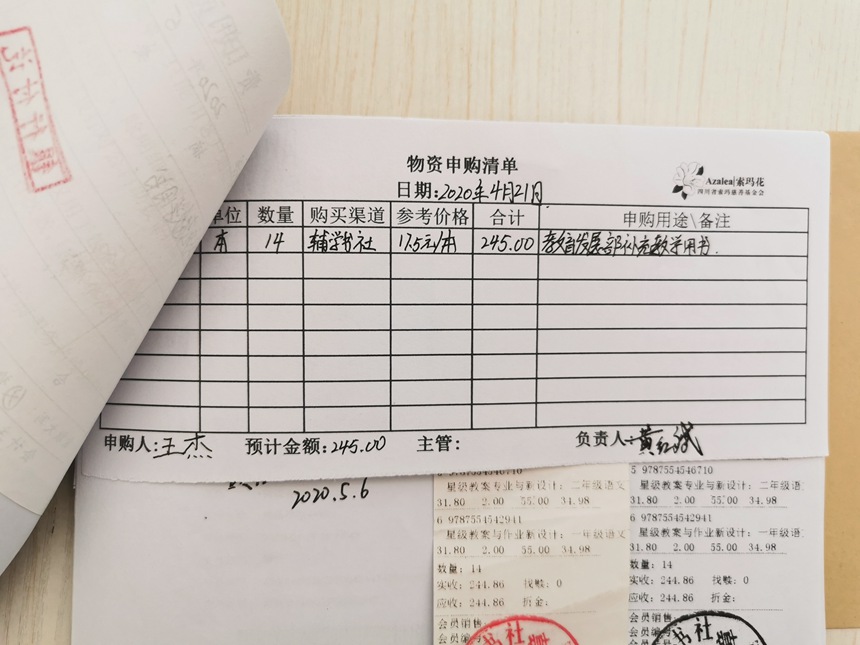 物资申购清单
Azalea|索玛花
四川省索玛慈善基金会
日期:2020年4月21日
单位 数量 购买渠道 参考价格 合计 申购用途\备注
本 14 辅学书社 17.5元/本 245.00 教育发展部补充教学用书.
申购人:王杰 预计金额:245.00 主管: 负责人:黄红斌
2020.5.6
5 9787554546710
星级教案专业与新设计: 二年级语文
31.80 2.00 55.00 34.98
6 9787554542941
星级教案与作业新设计: 一年级语文
31.80 2.00 55.00 34.98
数量: 14
实收: 244.86 找赎: 0
应收: 244.86 折金:
会员销售
会员编号
5 9787554546710
星级教案专业与新设计: 二年级语
31.80 2.00 55.00 34.98
6 9787554542941
星级教案与作业新设计: 一年级语
31.80 2.00 55.00 34.98
数量: 14
实收: 244.86 找赎: 0
应收: 244.86 折金:
会员销售
会员编号